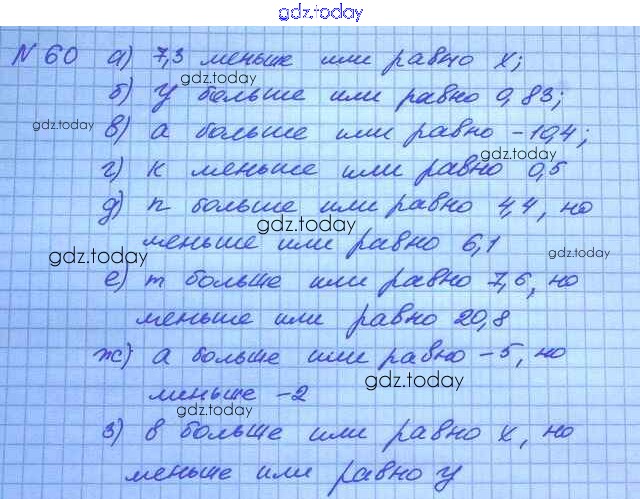 gdz.today
N 60 а) 7,3 меньше или равно х;
gdz.today
б) у больше или равно 0,83;
gdz.today в) а больше или равно -10,4;
gdz.today
г) к меньше или равно 0,5
д) n больше или равно 4,4, но
gdz.today
меньше или равно 6,1
gdz.today gdz.today
е) m больше или равно 7,6, но
меньше или равно 20,8
ж) а больше или равно -5, но
gdz.today
меньше -2
gdz.today
з) в больше или равно х, но
меньше или равно у